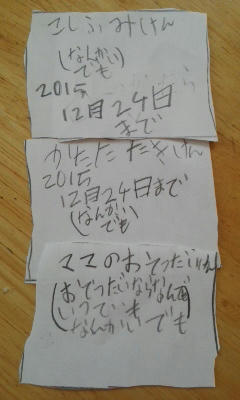 こしふみけん
(なんかい
でも)
2015
12月24日
まで
かたたたきけん
2015
12月24日まで
(なんかい
でも)
ママのおてつだいけん
(おてつだいならなん
いつでいも
なんかいでも)